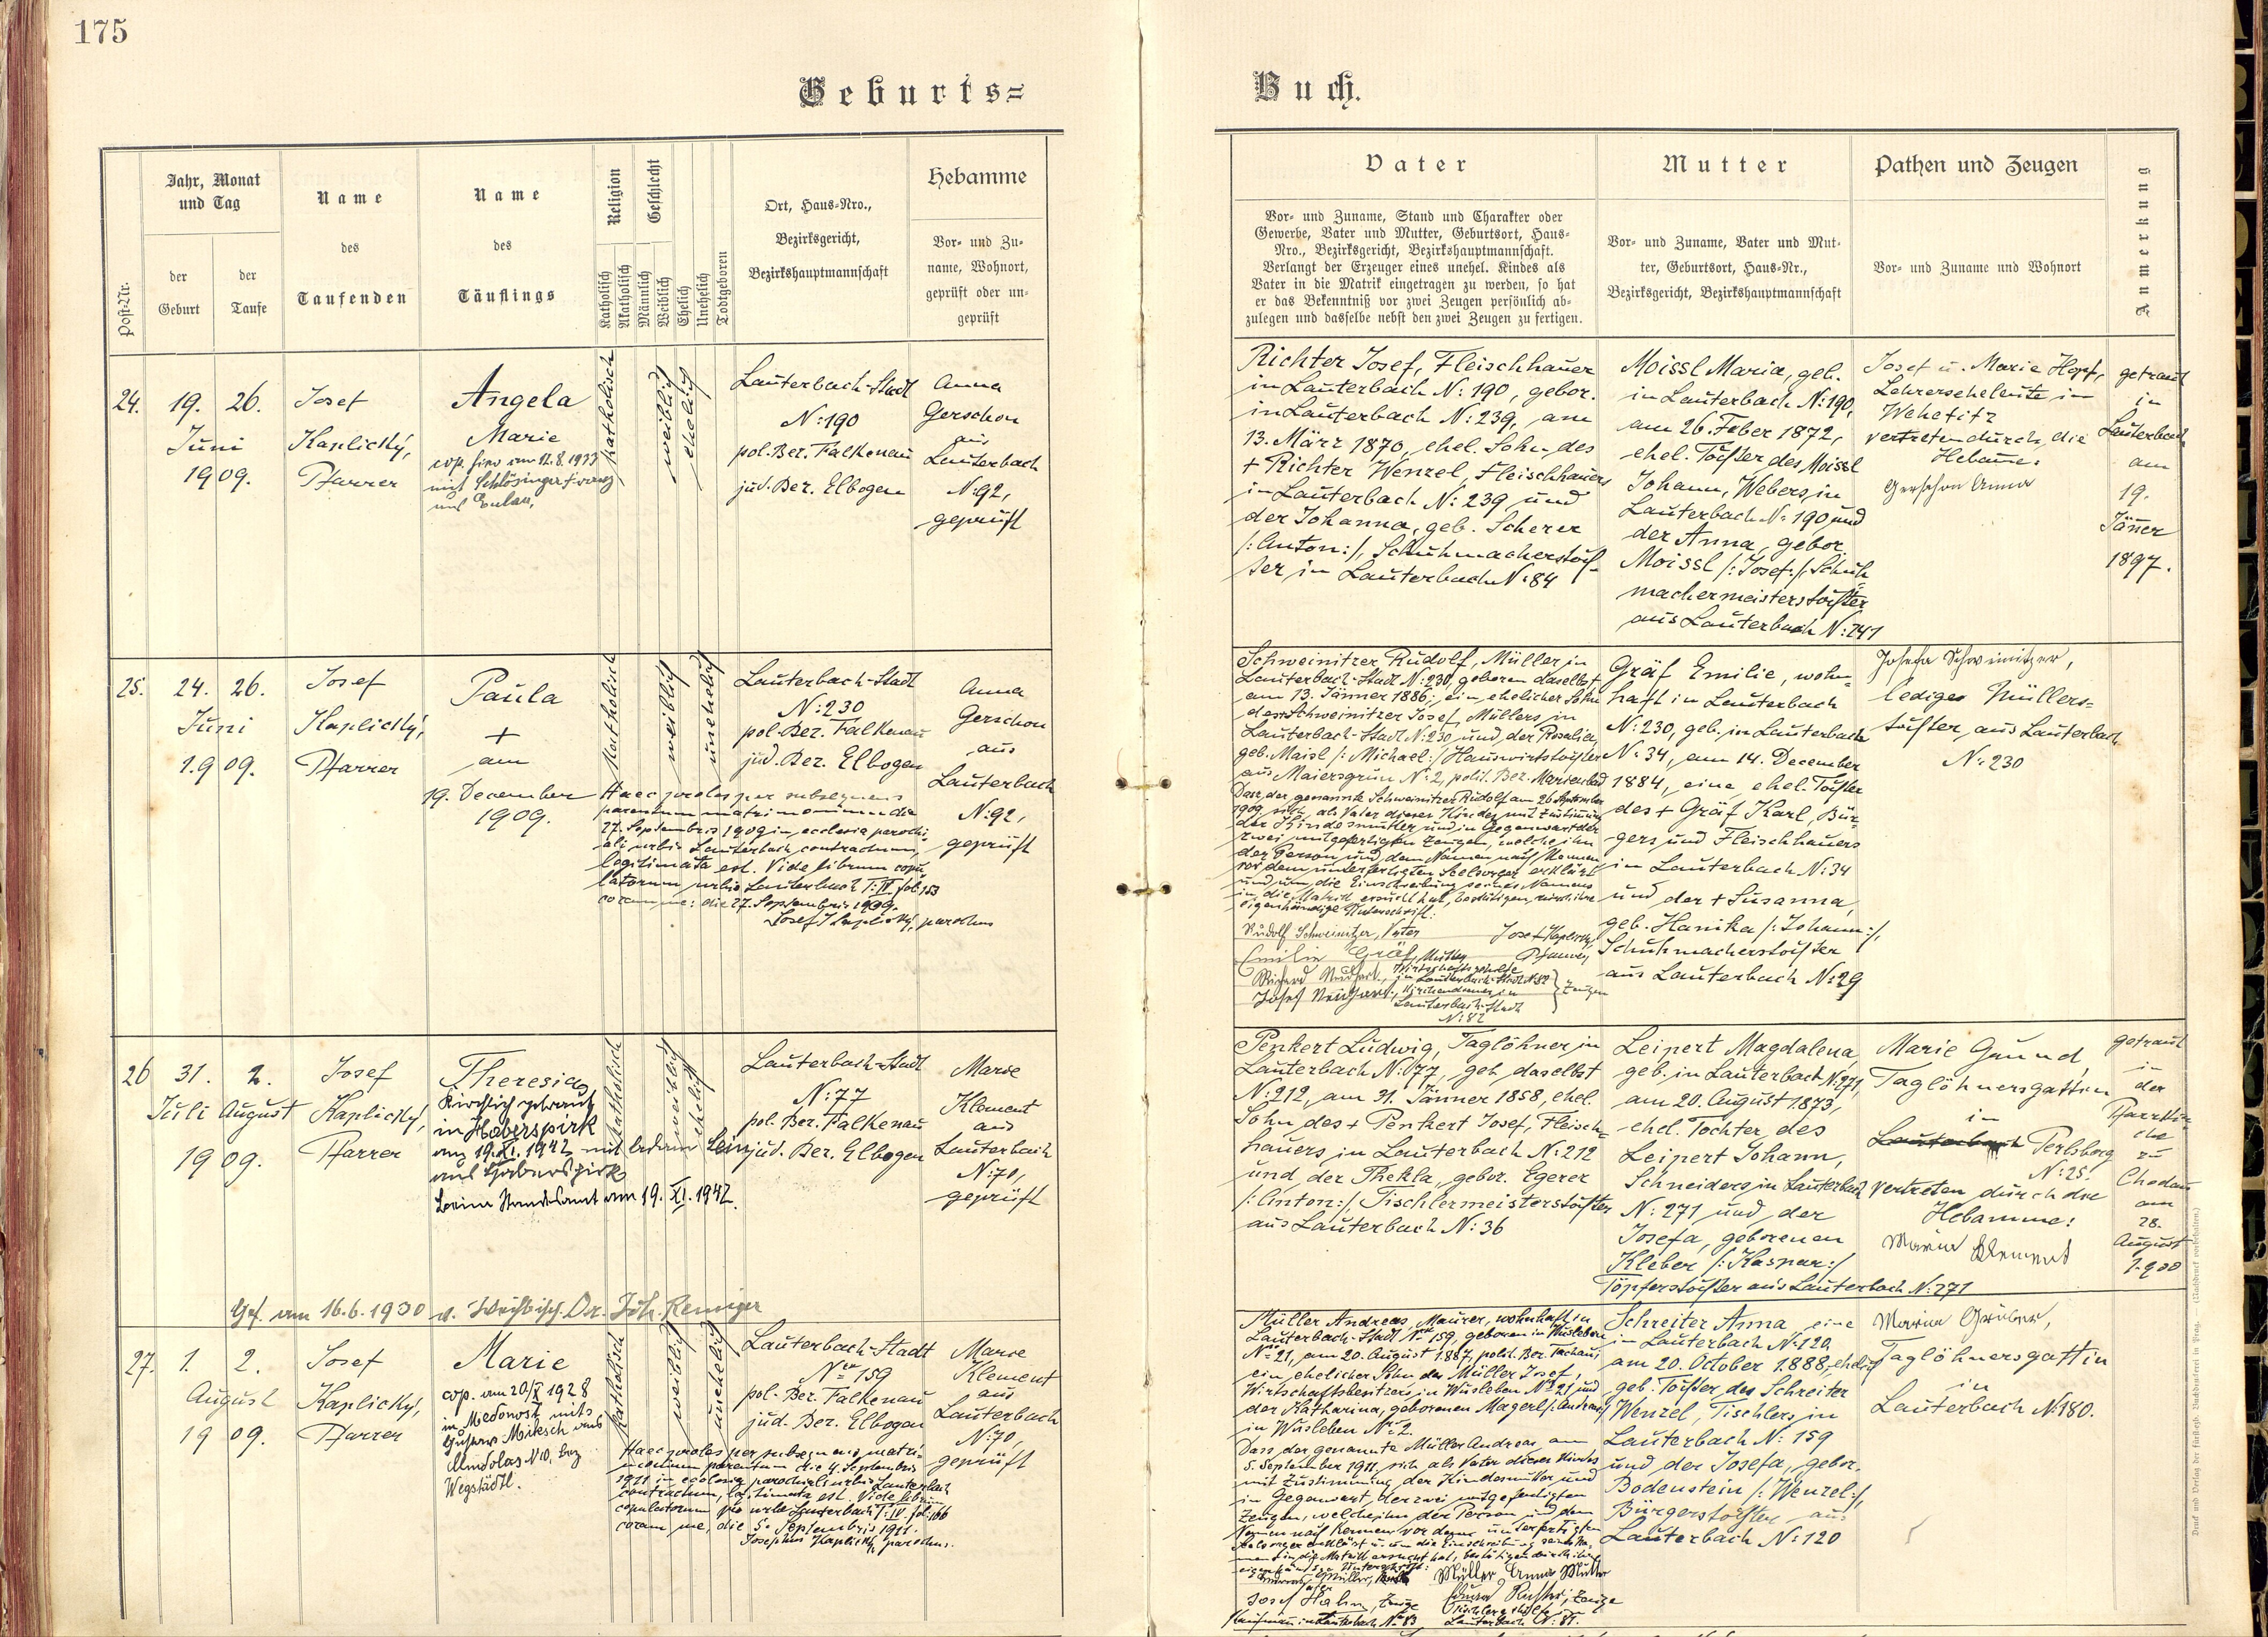 175
Geburts=
Buch.
Post-Nr.
Jahr, Monat und Tag
der Geburt
der Taufe
Name des Taufenden
Name des Täuflings
Religion
Katholisch
Akatholisch
Geschlecht
Männlich
Weiblich
Ehelich
Unehelich
Todtgeboren
Ort, Haus-Nro.,
Bezirksgericht,
Bezirkshauptmannschaft
Hebamme
Vor- und Zu-
name, Wohnort,
geprüft oder un-
geprüft
Vater
Vor- und Zuname, Stand und Charakter oder
Gewerbe, Vater und Mutter, Geburtsort, Haus-
Nro., Bezirksgericht, Bezirkshauptmannschaft.
Verlangt der Erzeuger eines unehel. Kindes als
Vater in die Matrik eingetragen zu werden, so hat
er das Bekenntniß vor zwei Zeugen persönlich ab-
zulegen und dasselbe nebst den zwei Zeugen zu fertigen.
Mutter
Vor- und Zuname, Vater und Mut-
ter, Geburtsort, Haus-Nr.,
Bezirksgericht, Bezirkshauptmannschaft
Pathen und Zeugen
Vor- und Zuname und Wohnort
Anmerkung
24.
19. 26.
Juni
1909.
Josef
Kaplický,
Pfarrer
Angela
Marie
cop. hier am 12.8.1933
mit Schlösinger Franz
katholisch
weiblich
ehelich
Lauterbach-Stadt
N: 190
pol. Bez. Falkenau
jud. Bez. Elbogen
Anna
Gerschon
aus
Lauterbach
N: 92,
geprüft
Richter Josef, Fleischhauer
in Lauterbach N: 190, gebor.
in Lauterbach N: 239, am
13. März 1870, ehel. Sohn des
+ Richter Wenzel, Fleischhauers
in Lauterbach N: 239 und
der Johanna, geb. Scherer
/:Anton:/, Schuhmacherstoch-
ter in Lauterbach N: 84
Moissl Maria, geb.
in Lauterbach N: 190,
am 26. Feber 1872,
ehel. Tochter des Moissl
Johann, Webers in
Lauterbach N: 190 und
der Anna, gebor.
Moissl /:Josef:/, Schuh-
machermeisterstochter
aus Lauterbach N: 241
Josef u. Marie Hopf,
Lehrerseheleute in
vertreten durch die
Hebame:
Gerschon Anna
getraut
in
Lauterbach
am
19.
Jänner
1897.
25.
24. 26.
Juni
1909.
Josef
Kaplický,
Pfarrer
Paula
+
am
19. December
1909.
katholisch
weiblich
unehelich
Lauterbach-Stadt
N: 230
pol. Bez. Falkenau
jud. Bez. Elbogen
Haec proles per subsequens
parentum matrimonium die
27. Septembris 1909 in ecclesia parochi-
ali urbis Lauterbach contractum,
legitimata est. Vide librum copu-
latorum urbis Lauterbach T: IV. fol. 153
coram me: die 27. Septembris 1909.
Josef Kaplický, parochus
Anna
Gerschon
aus
Lauterbach
N: 92,
geprüft
Schweinitzer Rudolf, Müller in
Lauterbach-Stadt N: 230, geboren daselbst
am 13. Jänner 1886, ein ehelicher Sohn
des Schweinitzer Josef, Müllers in
Lauterbach-Stadt N: 230 und der Rosalia,
geb. Maisl /:Michael:/ Hauswirtstochter
aus Maiersgrün N: 2, polit. Bez. Marienbad
Dass der genannte Schweinitzer Rudolf am 26 September
1909 sich als Vater dieses Kindes mit Zustimmung
der Kindesmutter und in Gegenwart der
zwei mitgefertigten Zeugen, welche ihn
der Person und dem Namen nach kennen
vor dem unterfertigten Seelsorger erklärt
und um die Einschreibung seines Namens
in die Matrik ersucht hat, bestätigen nebst ihre
eigenhändige Unterschrift:
Rudolf Schweinitzer, Vater
Josef Kaplický,
Pfarrer
Emilie Gräf, Mutter
Lauterbach-Stadt
N: 82
Zeugen
Gräf Emilie, wohn-
haft in Lauterbach
N: 230, geb. in Lauterbach
N: 34, am 14. December
1884, eine ehel. Tochter
des + Gräf Karl, Bür-
gers und Fleischhauers
in Lauterbach N: 34
und der + Susanna,
geb. Hanika /:Johann:/,
Schuhmacherstochter
aus Lauterbach N: 29
Josefa Schweinitzer,
ledige Müllers-
tochter aus Lauterbach
N: 230
26
31. 2.
Juli August
1909.
Josef
Kaplický,
Pfarrer
Theresia
Kirchlich getraut
in Haberspirk
am 19. XI. 1942 mit
aus Haberspirk
Standesamt am 19. XI. 1942.
katholisch
weiblich
ehelich
Lauterbach-Stadt
N: 77
pol. Bez. Falkenau
jud. Bez. Elbogen
Marie
Klement
aus
Lauterbach
N: 70,
geprüft
Penkert Ludwig, Taglöhner in
Lauterbach N: 77, geb. daselbst
N: 212, am 31. Jänner 1858, ehel.
Sohn des + Penkert Josef, Fleisch-
hauers in Lauterbach N: 212
und der Thekla, gebor. Egerer
/:Anton:/, Tischlermeisterstochter
aus Lauterbach N: 36
Leipert Magdalena,
geb. in Lauterbach N: 271,
am 20. August 1873,
ehel. Tochter des
Leipert Johann,
Schneiders in Lauterbach
N: 271 und der
Josefa, geborenen
Kleber /:Kaspar:/
Töpferstochter aus Lauterbach N: 271
Marie Grund,
Taglöhnersgattin
in
Lauterbach Perlsberg
N: 25.
vertreten durch die
Hebamme:
Maria Klement
getraut
in
der
Pfarrkir-
che
zu
Chodau
am
28.
August
1900
Gef. am 16.6.1930 v. Weihbisch. Dr. Joh. Remiger
27.
1. 2.
August
1909.
Josef
Kaplický,
Pfarrer
Marie
cop. am 20/X 1928
in Medonost mit
Gustav Miksch aus
Wegstädtl.
katholisch
weiblich
unehelich
Lauterbach-Stadt
Nro 159
pol. Bez. Falkenau
jud. Bez. Elbogen
Haec proles per subsequens matri-
monium parentum die 4. Septembris
1911 in ecclesia parochiali urbis Lauterbach
contractum, legitimata est. Vide librum
copulatorum pro urbe Lauterbach T: IV. fol: 166
coram me, die 5. Septembris 1911.
Josephus Kaplický, parochus.
Marie
Klement
aus
Lauterbach
N: 70,
geprüft
Müller Andreas, Maurer, wohnhaft in
Lauterbach-Stadt Nro 159, geboren in Wusleben
Nro 21, am 20. August 1887, polit. Bez. Tachau,
ein ehelicher Sohn des Müller Josef,
Wirtschaftsbesitzers in Wusleben Nro 21 und
der Katharina, geborenen Magerl /:Andreas:/
in Wusleben Nro 2.
Dass der genannte Müller Andreas am
5. September 1911 sich als Vater dieses Kindes
mit Zustimmung der Kindesmutter und
in Gegenwart der zwei mitgefertigten
Zeugen, welche ihn der Person und dem
Namen nach kennen vor dem unterfertigten
Seelsorger erklärt u. um die Einschreibung seines Na-
mens in die Matrik ersucht hat, bestätigen
eigenhändige Unterschrift:
Andreas Müller, Vater
Müller Anna Mutter
Josef Hahn, Zeuge
Kaufmann in Lauterbach Nro 83
Lauterbach N: 87.
Schreiter Anna, eine
in Lauterbach N: 120,
am 20. October 1888, ehelich
geb. Tochter des Schreiter
Wenzel, Tischlers in
Lauterbach N: 159
und der Josefa, gebor.
Bodenstein /:Wenzel:/,
Bürgerstochter aus
Lauterbach N: 120
Maria Gruber,
Taglöhnersgattin
in
Lauterbach N: 180.